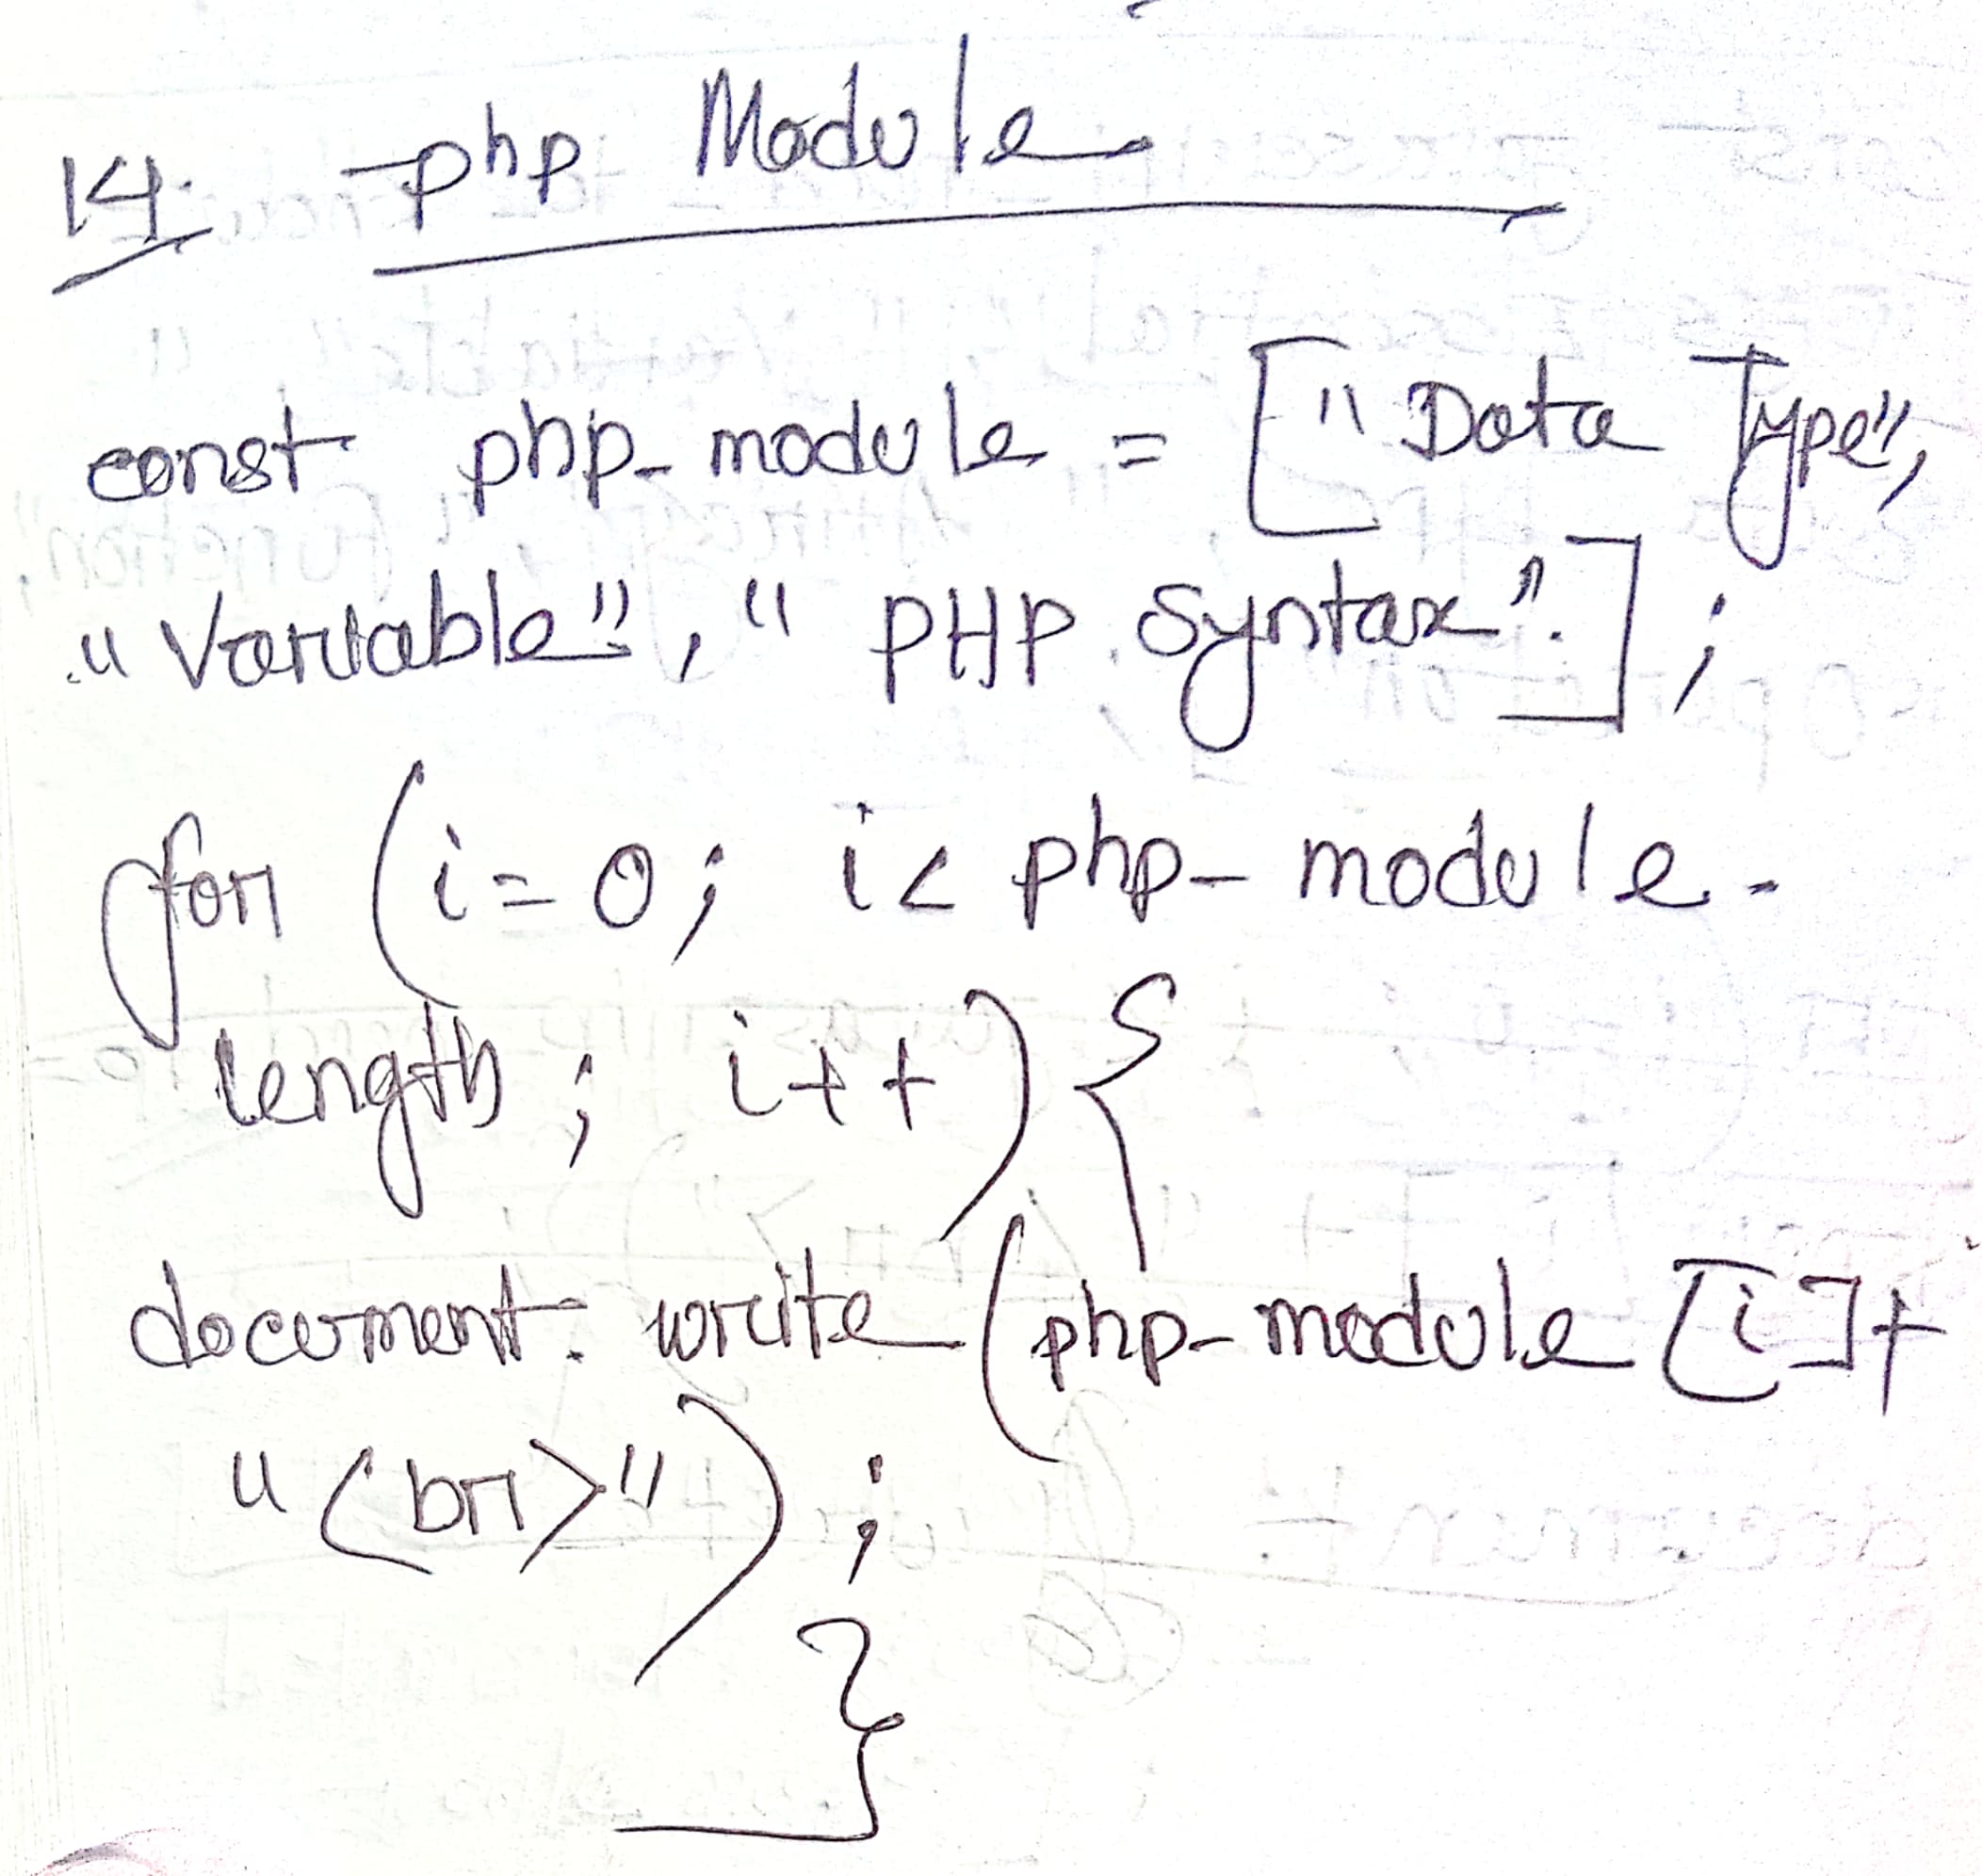 14. php Module
const php_module = ["Data Type",
"Variable", "PHP Syntax"];
for (i=0; i< php_module.
length; i++) {
document.write (php_module [i]+
"<br>");
}